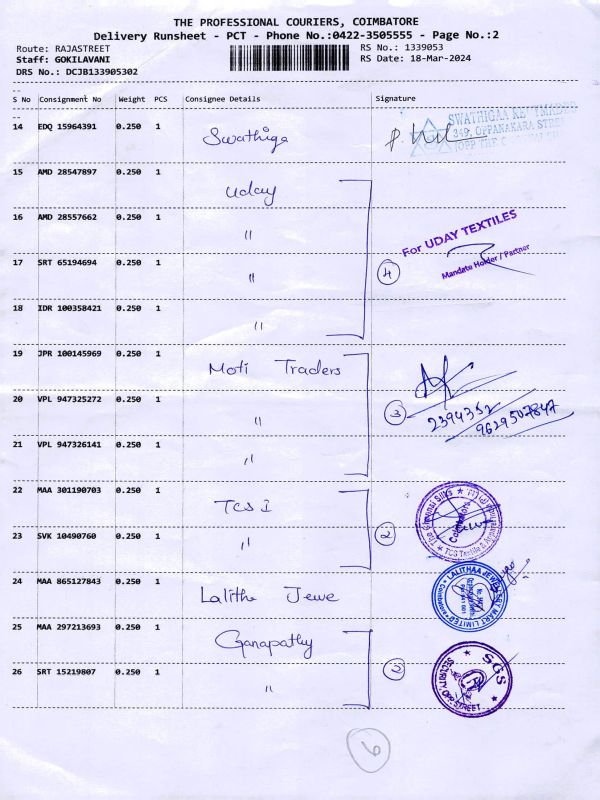 THE PROFESSIONAL COURIERS, COIMBATORE
Delivery Runsheet - PCT - Phone No.:0422-3505555 - Page No.:2
Route: RAJASTREET RS No.: 1339053
Staff: GOKILAVANI RS Date: 18-Mar-2024
DRS No.: DCJB133905302
S No Consignment No Weight PCS Consignee Details Signature
14 EDQ 15964391 0.250 1 Swathiga
SWATHIGAA
349, OPPANAKARA STREET
(OPP THE
15 AMD 28547897 0.250 1 Uday
16 AMD 28557662 0.250 1 "
For UDAY TEXTILES
17 SRT 65194694 0.250 1 " 4
Mandate Holder / Partner
18 IDR 100358421 0.250 1 "
19 JPR 100145969 0.250 1 Moti Traders
20 VPL 947325272 0.250 1 " 3
2394352
9629507847
21 VPL 947326141 0.250 1 "
22 MAA 301190703 0.250 1 TCS I
The Chennai Silks
TCS Textile &
23 SVK 10490760 0.250 1 " 2
24 MAA 865127843 0.250 1 Lalitha Jewe
LALITHAA JEWELLERY MART LIMITED
25 MAA 297213693 0.250 1 Ganapathy
26 SRT 15219807 0.250 1 " 2
SGS
SECURITY OPP. STREET
6